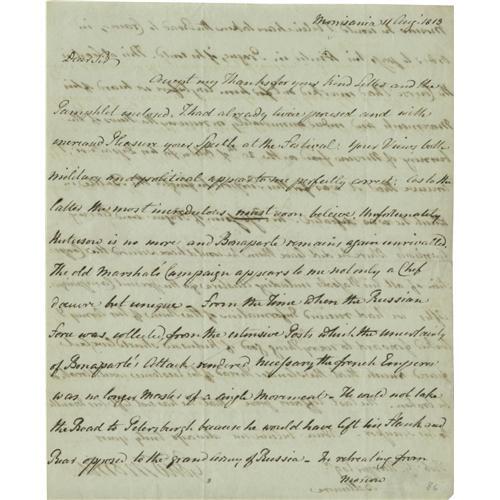 Morrisania 11 Aug. 1813
Dear Sir
Accept my Thanks for your kind Letter and the
Pamphlet inclosed. I had already twice perused and with
increased Pleasure your Speech at the Festival: your Views both
military and political appear to me perfectly correct: as to the
latter the most incredulous must soon believe Unfortunately
Kutusow is no more and Bonaparte remains again unrivalled
The old Marshals Campaign appears to me not only a Chef
d'œuvre but unique – From the Time when the Russian
Force was collected from the extensive Posts which the uncertainty
of Bonaparte's Attack rendered necessary the french Emperor
was no longer Master of a single Movement – He would not take
the Road to Petersburgh because he would have left his Flank and
Rear opposed to the grand army of Russia – In retreating from
Moscow
86